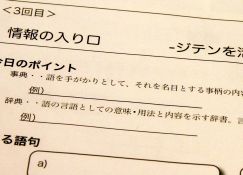 <3回目>
情報の入り口 -ジテンを活
今日のポイント
事典・・語を手がかりとして、それを名目とする事柄の内容
例)
辞典・・語の言語としての意味・用法と内容を示す辞書。言
例)
る語句
a)